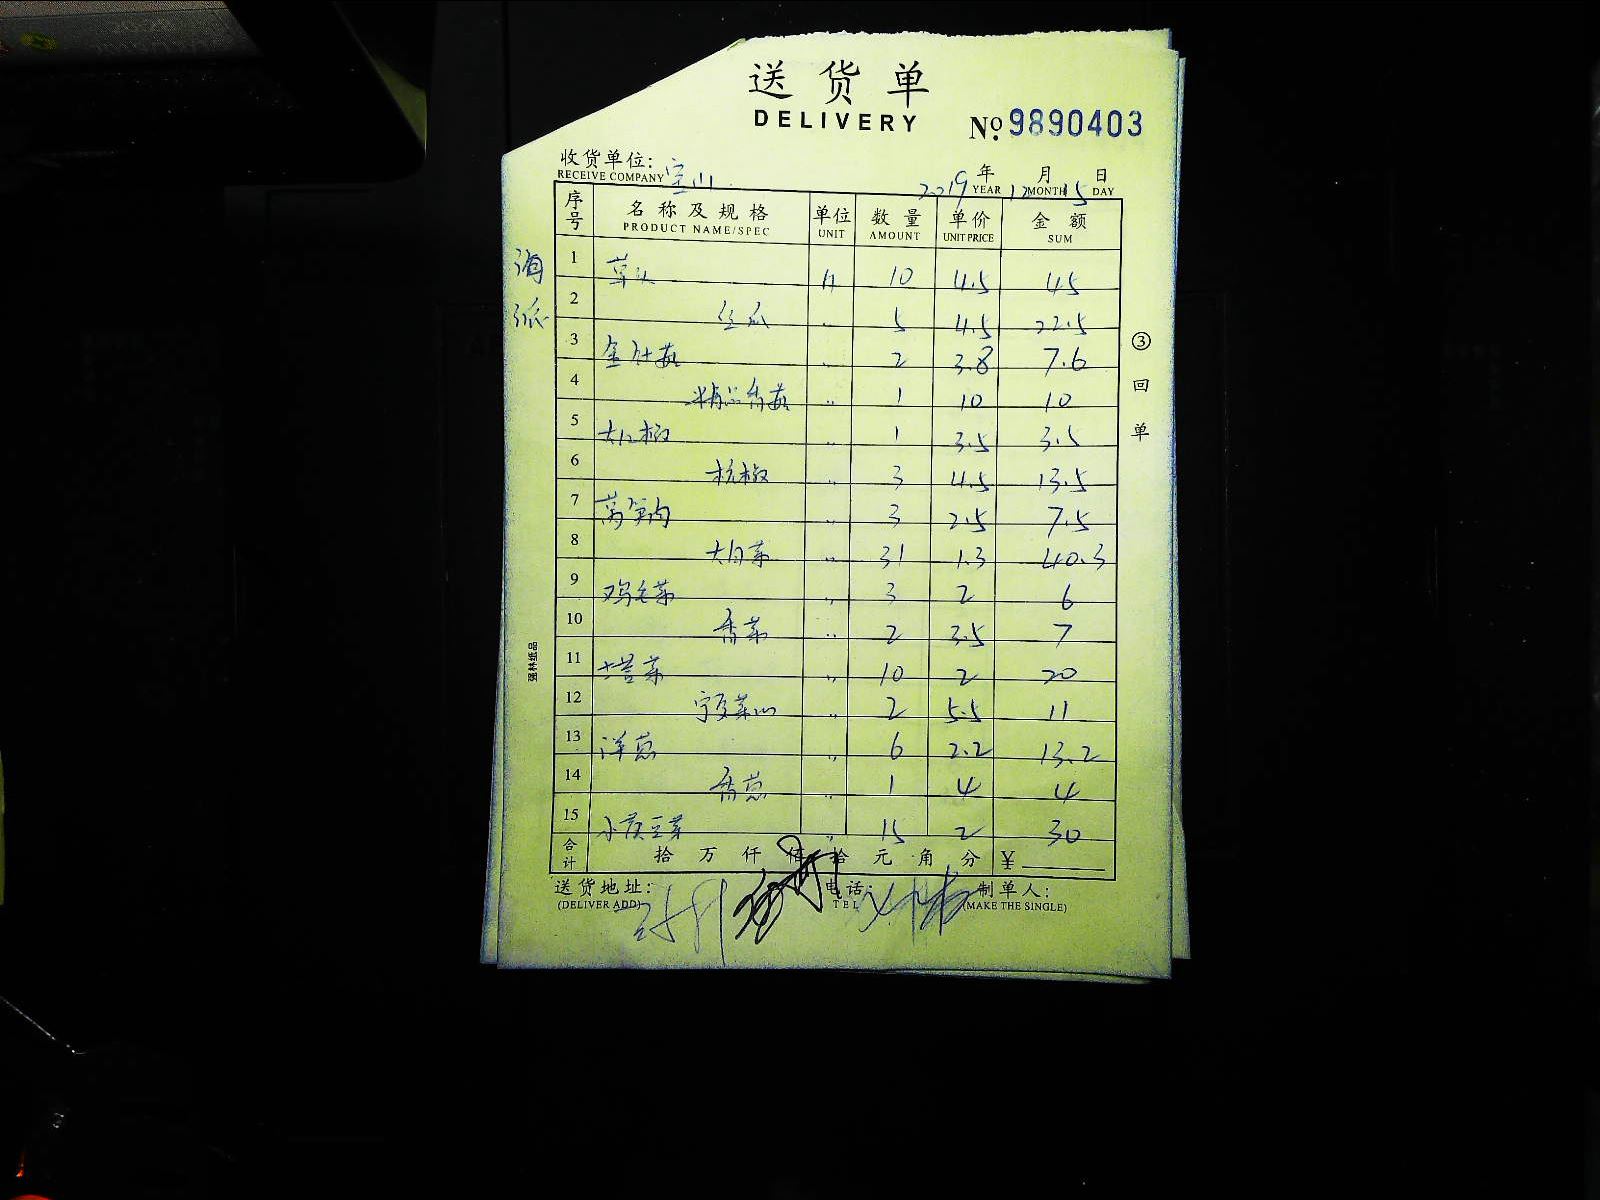 送货单
DELIVERY
№ 9890403
收货单位: 宝山
RECEIVE COMPANY
2019 年 YEAR 12 月 MONTH 15 日 DAY
序号 名称及规格 PRODUCT NAME/SPEC 单位 UNIT 数量 AMOUNT 单价 UNIT PRICE 金额 SUM
1 草头 斤 10 4.5 45
2 丝瓜 〃 5 4.5 22.5
3 金针菇 〃 2 3.8 7.6
4 精品香菇 〃 1 10 10
5 大红椒 〃 1 3.5 3.5
6 杭椒 〃 3 4.5 13.5
7 莴笋肉 〃 3 2.5 7.5
8 大白菜 〃 31 1.3 40.3
9 鸡毛菜 〃 3 2 6
10 香菜 〃 2 3.5 7
11 塔菜 〃 10 2 20
12 宁夏菜心 〃 2 5.5 11
13 洋葱 〃 6 2.2 13.2
14 香葱 〃 1 4 4
15 小黄豆芽 〃 15 2 30
合计 拾 万 仟 佰 拾 元 角 分 ¥
送货地址: 电话: 制单人:
(DELIVER ADD) TEL (MAKE THE SINGLE)
③回单
强林纸品